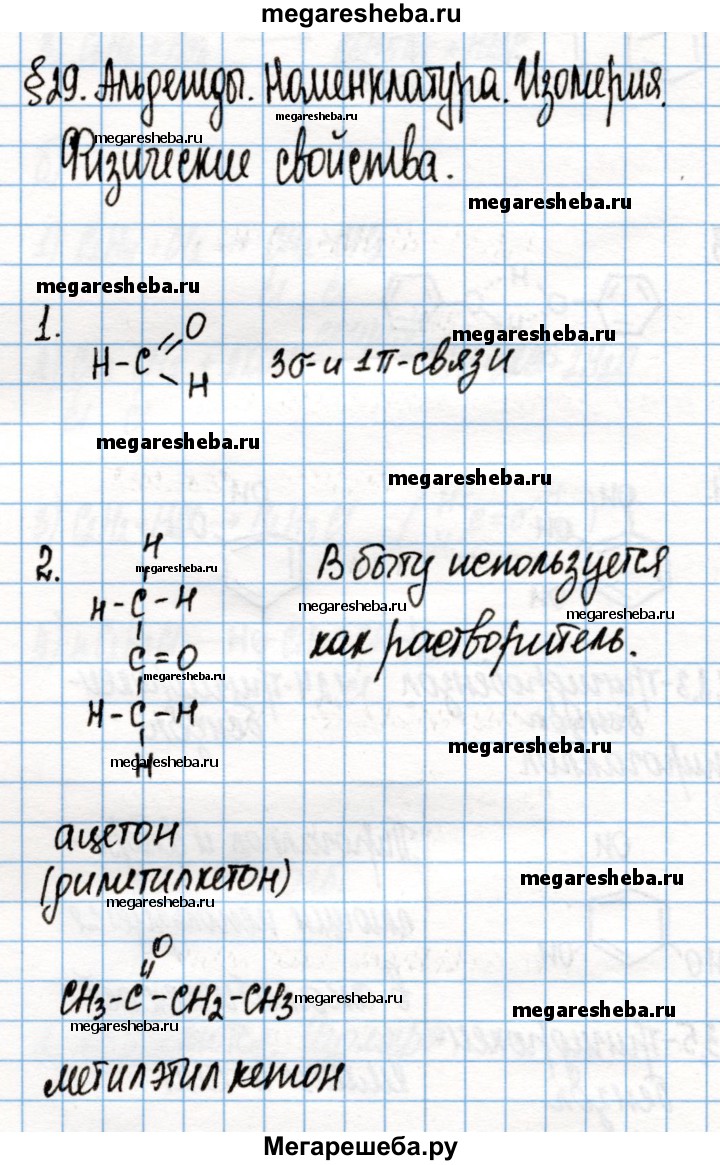 megaresheba.ru
§29. Альдегиды. Номенклатура. Изомерия.
megaresheba.ru
megaresheba.ru
Физические свойства.
megaresheba.ru
megaresheba.ru
1.
O
H-C
H
3σ- и 1π-связи
megaresheba.ru
megaresheba.ru
megaresheba.ru
2.
H
megaresheba.ru
H-C-H
C=O
megaresheba.ru
H-C-H
H
megaresheba.ru
В быту используется
megaresheba.ru
megaresheba.ru
как растворитель.
megaresheba.ru
ацетон
(диметилкетон)
megaresheba.ru
megaresheba.ru
O
CH3-C-CH2-CH3
megaresheba.ru
megaresheba.ru
megaresheba.ru
метилэтилкетон
Мегарешеба.ру